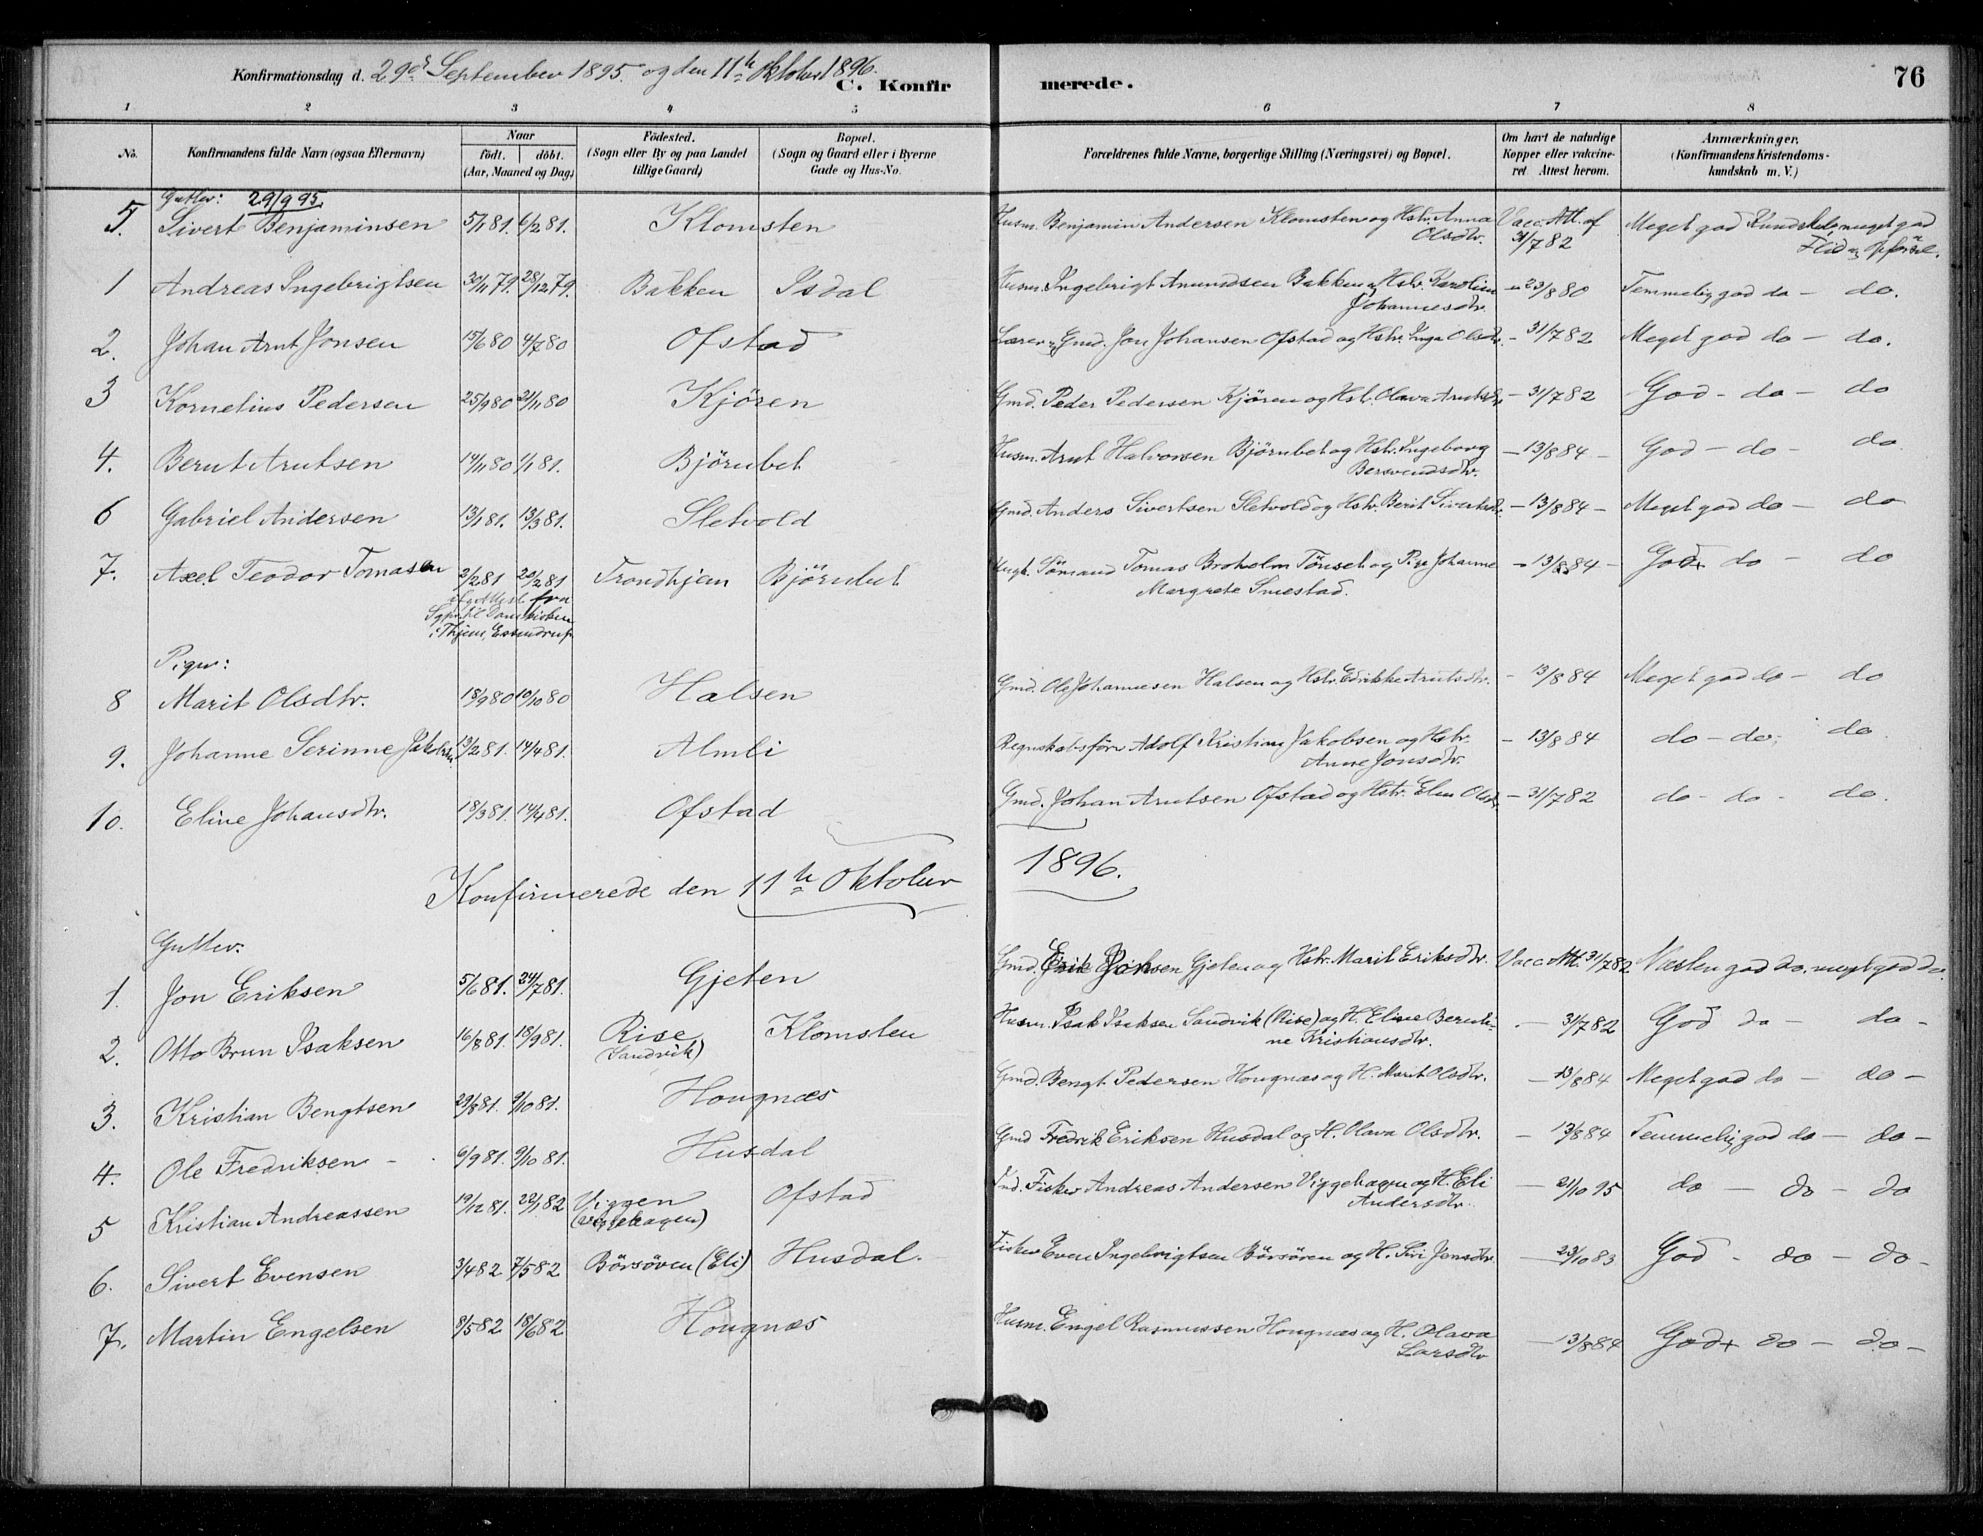 Konfirmationsdag d. 29de September 1895. og den 11te Oktober 1896.
C. Konfirmerede.
76
1 2 3 4 5 6 7 8
No.
Konfirmandens fulde Navn (ogsaa Efternavn)
Naar
födt. döbt.
(Aar, Maaned og Dag)
Födested.
(Sogn eller By og paa Landet
tillige Gaard)
Bopæl.
(Sogn og Gaard eller i Byerne
Gade og Hus-No.
Forældrenes fulde Navne, borgerlige Stilling (Næringsvei) og Bopæl.
Om havt de naturlige
Kopper eller vakcine-
ret Attest herom.
Anmærkninger.
(Konfirmandens Kristendoms-
kundskab m. V.)
Gutter: 29/9 95
5. Sivert Benjaminsen 5/1 81. 6/2 81. Klomsten Husm. Benjamin Andersen Klomsten og Hstr. Anna Vacc. Att. af Meget god Kundskab, meget god
Olsdtr. 31/7 82 Flid og Opförsel.
1 Andreas Ingebrigtsen 30/11 79. 28/12 79. Bakken Isdal Husm. Ingebrigt Amundsen Bakken og Hstr. Karoline - 23/8 80 Temmelig god do - do.
Johannesdtr.
2. Johan Arnt Jonsen 15/6 80 4/7 80 Ofstad Lærer og Gmd. Jon Johansen Ofstad og Hstr. Inga Olsdtr. - 31/7 82 Meget god do - do.
3 Kornelius Pedersen 25/9 80 21/11 80 Kjören Gmd. Peder Pedersen Kjören og Hstr. Olava Arntsdtr - 31/7 82 God - do - do
4. Bernt Arntsen 14/11 80 1/1 81. Björnbet Husm. Arnt Halvorsen Björnbet og Hstr. Ingeborg - 13/8 84 - God - do - do
Bersvendsdtr.
6 Gabriel Andersen 13/1 81. 13/3 81. Sletvold Gmd. Anders Sivertsen Sletvold og Hstr. Berit Sivertsdtr. - 13/8 84 - Meget god do - do
7. Axel Teodor Tomasen 2/2 81 20/2 81 Trondhjem Björnbet Ungk. Sömand Tomas Broholm Tönset og Pige Johanne - 13/8 84 - God do - do
Margrete Smestad.
Attest fra
Sgpr. til Domkirken
i Thjem,
Piger:
8 Marit Olsdtr. 18/9 80 10/10 80 Halsen Gmd. Ole Johannesen Halsen og Hstr. Edrikke Arntsdtr. - 13/8 84 Meget god do - do
9. Johanne Serinne Jakobsen 13/2 81. 14/4 81. Almli Regnskabsförer Adolf Kristian Jakobsen og Hstr. - 13/8 84 do - do, do
Anne Jonsdtr.
10. Eline Johansdtr. 18/3 81. 14/4 81. Ofstad Gmd. Johan Arntsen Ofstad og Hstr. Elen Olsdtr - 31/7 82 do - do - do.
Konfirmerede den 11te Oktober 1896.
Gutter:
1. Jon Eriksen 5/6 81. 24/7 81. Gjeten Gmd. Erik Jonsen Gjeten og Hstr. Marit Eriksdtr. Vacc. Att. 31/7 82 Næsten god do, meget god do.
2. Otto Brun Isaksen 16/8 81. 18/9 81. Rise Klomsten Husm. Isak Isaksen Sandvik (Rise) og H. Eline Bernti- - 31/7 82 God do - do -
(Sandvik) ne Kristiansdtr.
3. Kristian Bengtsen 29/8 81. 9/10 81. Hougnæs Gmd. Bengt Pedersen Hougnæs og H. Marit Olsdtr. - 13/8 84 Meget god do - do -
4. Ole Fredriksen - 6/9 81. 9/10 81. Husdal Gmd Fredrik Eriksen Husdal og H. Olava Olsdtr. - 13/8 84 Temmelig god do - do -
5 Kristian Andreassen 19/12 81. 22/1 82 Viggen Ofstad Ind. Fisker Andreas Andersen Viggehagen og H. Eli - 21/10 95 do - do - do
(Viggehagen) Andersdtr.
6. Sivert Evensen 3/4 82 7/5 82 Börsören (Eli) Husdal. Fisker Even Ingebrigtsen Börsören og H. Siri Jonsdtr - 23/10 83 God - do - do -
7. Martin Engelsen 8/5 82 18/6 82 Hougnæs Husm. Engel Rasmussen Hougnæs og H. Olava - 13/8 84 God+ do - do -
Larsdtr